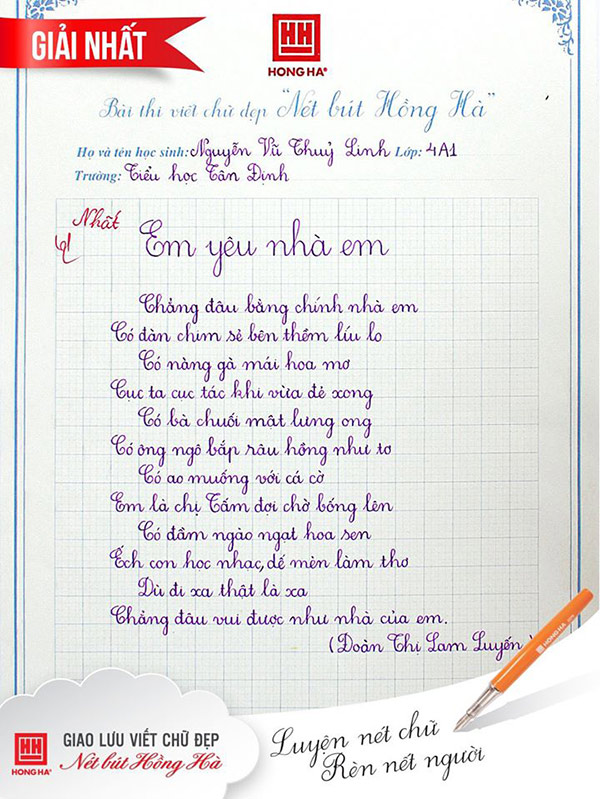 GIẢI NHẤT
HH
HONG HA®
Bài thi viết chữ đẹp "Nét bút Hồng Hà"
Họ và tên học sinh: Nguyễn Vũ Thuỷ Linh Lớp: 4A1
Trường: Tiểu học Tân Định
Nhất
Em yêu nhà em
Chẳng đâu bằng chính nhà em
Có đàn chim sẻ bên thềm líu lo
Có nàng gà mái hoa mơ
Cục ta cục tác khi vừa đẻ xong
Có bà chuối mật lưng ong
Có ông ngô bắp râu hồng như tơ
Có ao muống với cá cờ
Em là chị Tấm đợi chờ bống lên
Có đầm ngào ngạt hoa sen
Ếch con học nhạc, dế mèn làm thơ
Dù đi xa thật là xa
Chẳng đâu vui được như nhà của em.
(Đoàn Thị Lam Luyến)
HONG HA
HH
HONG HA®
GIAO LƯU VIẾT CHỮ ĐẸP
Nét bút Hồng Hà
Luyện nét chữ
Rèn nét người